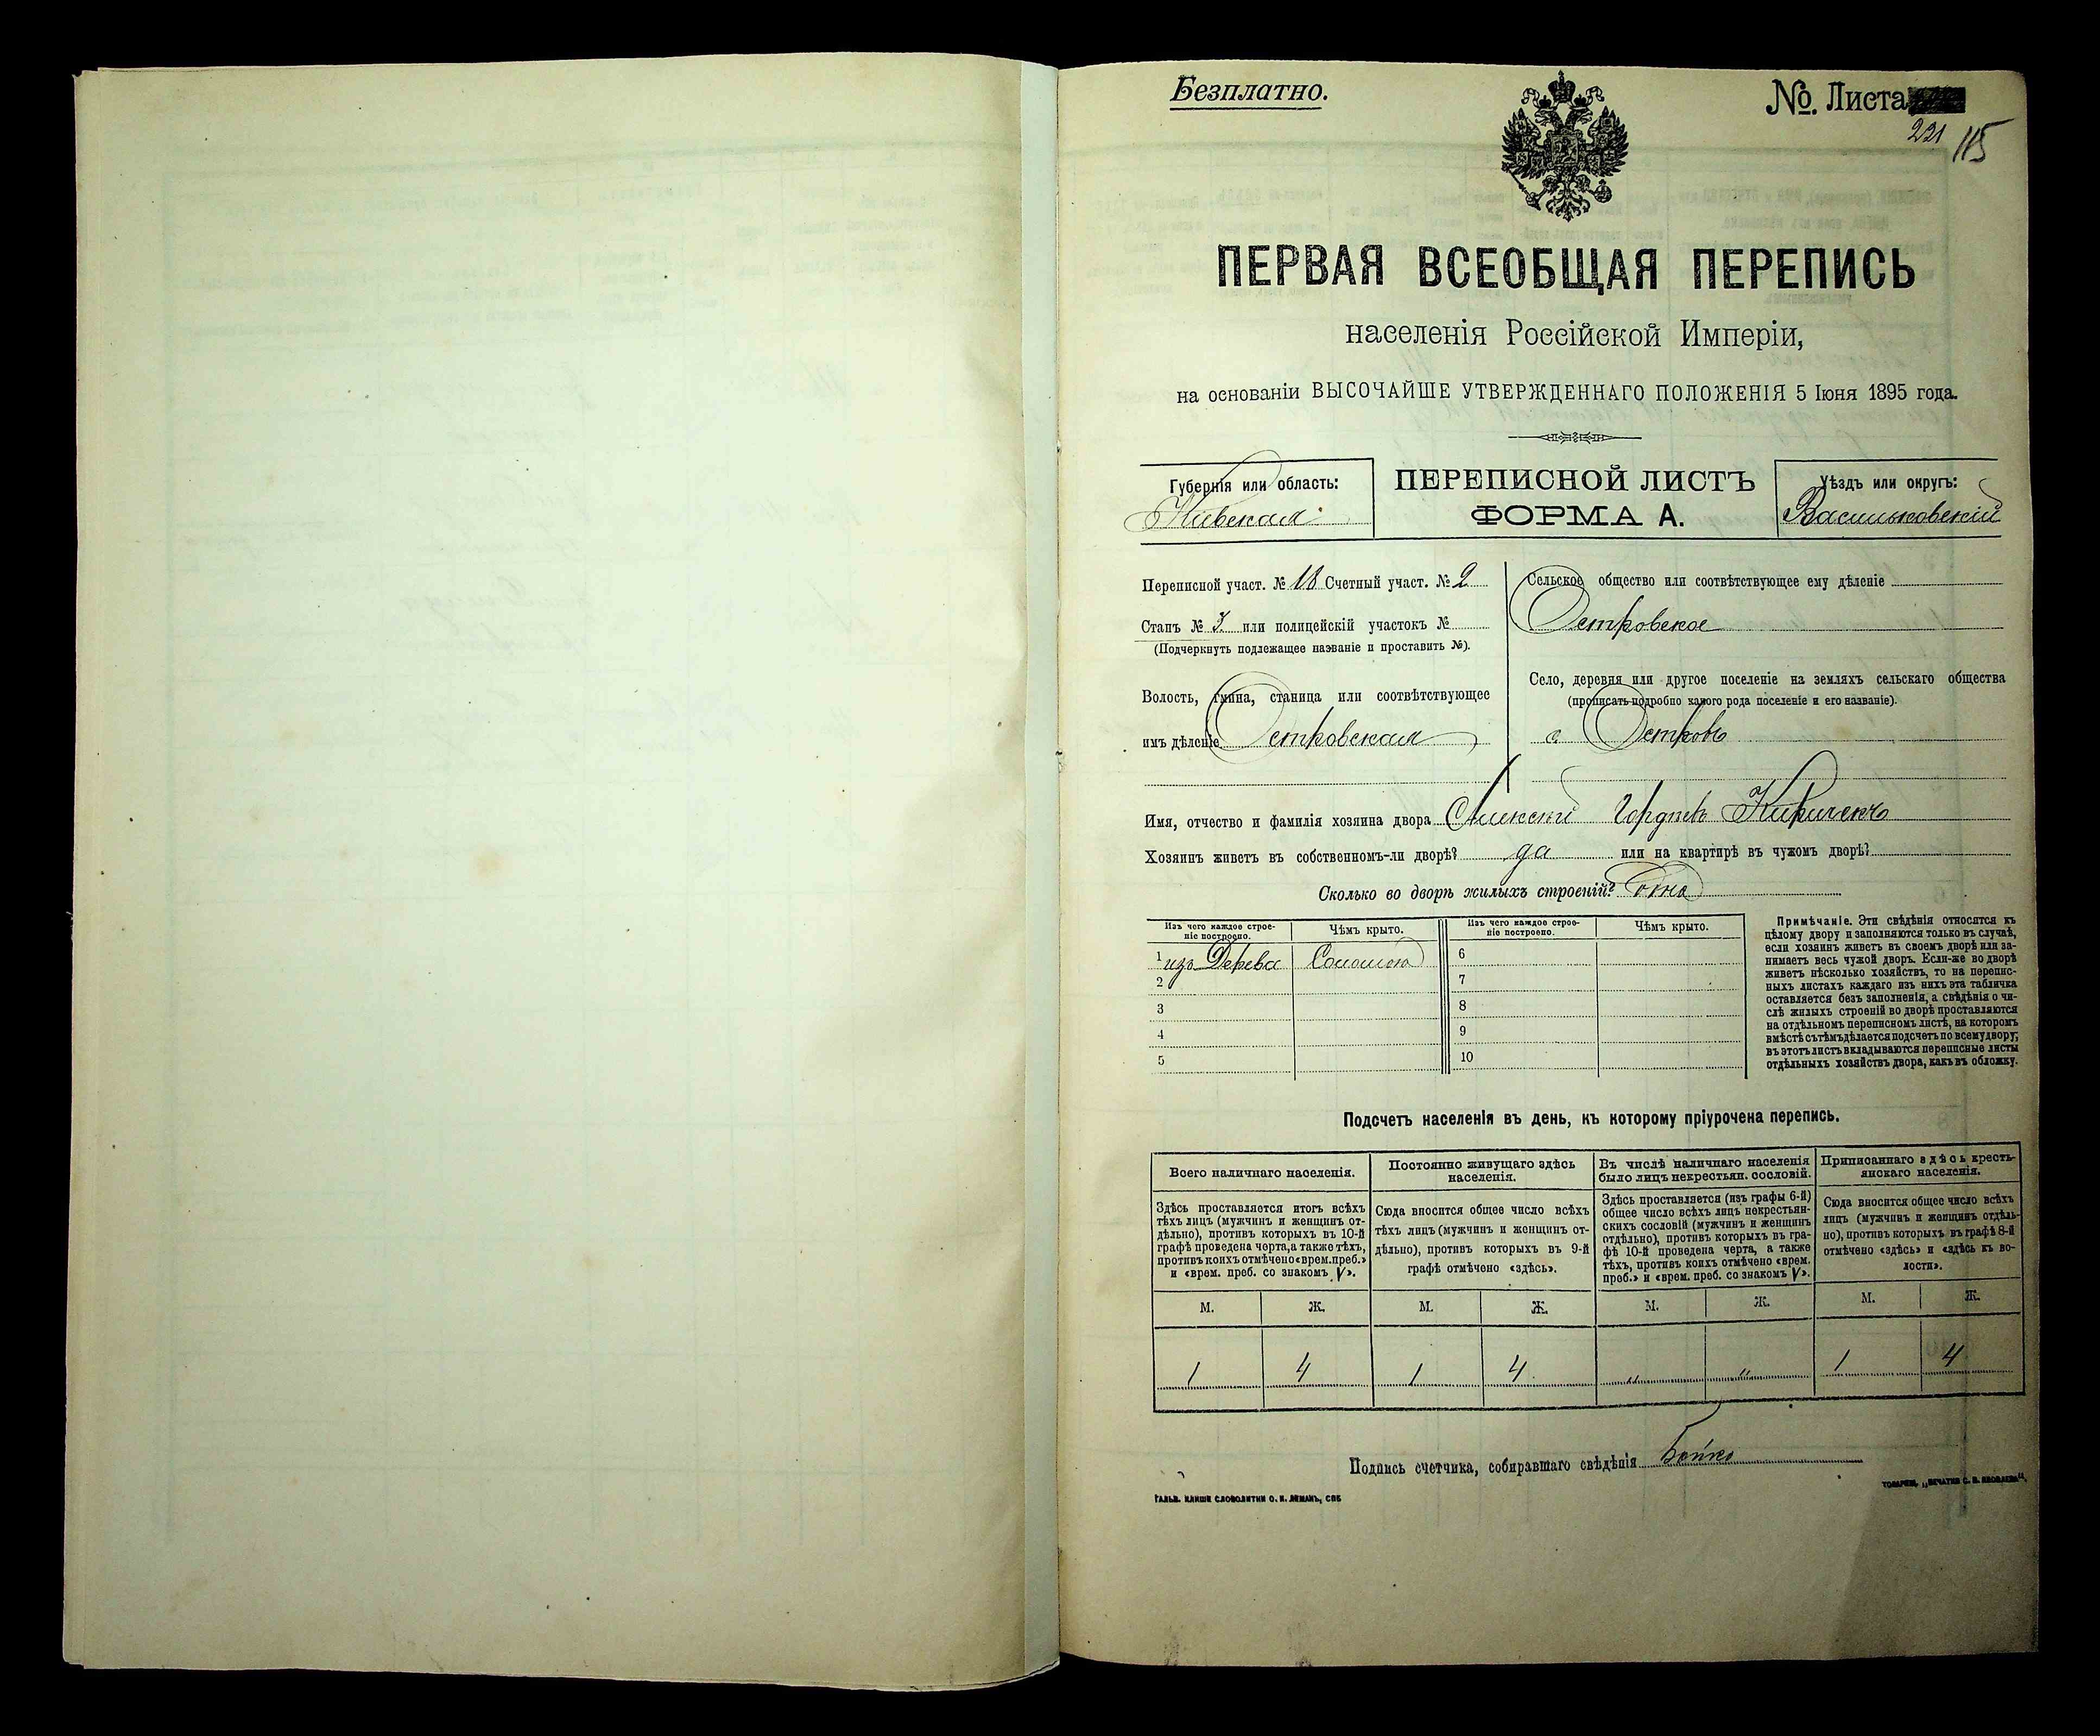 Безплатно.
№. Листа
221 115
ПЕРВАЯ ВСЕОБЩАЯ ПЕРЕПИСЬ
населенія Россійской Имперіи,
на основаніи ВЫСОЧАЙШЕ УТВЕРЖДЕННАГО ПОЛОЖЕНІЯ 5 Іюня 1895 года.
Губернія или область:
Кіевская
ПЕРЕПИСНОЙ ЛИСТЪ
ФОРМА А.
Уѣздъ или округъ:
Васильковскій
Переписной участ. № 18 Счетный участ. № 2
Станъ № 3 или полицейскій участокъ №
(Подчеркнуть подлежащее названіе и проставить №).
Волость, гмина, станица или соотвѣтствующее
имъ дѣленіе Островская
Сельское общество или соотвѣтствующее ему дѣленіе
Островское
Село, деревня или другое поселеніе на земляхъ сельскаго общества
(прописать подробно какого рода поселеніе и его названіе).
с Островъ
Имя, отчество и фамилія хозяина двора Алексѣй Гордѣевъ Кириченко
Хозяинъ живетъ въ собственномъ-ли дворѣ? да или на квартирѣ въ чужомъ дворѣ?
Сколько во дворѣ жилыхъ строеній? одно
Изъ чего каждое строе-
ніе построено.
Чѣмъ крыто.
Изъ чего каждое строе-
ніе построено.
Чѣмъ крыто.
1 изъ Дерева Соломою 6
2 7
3 8
4 9
5 10
Примѣчаніе. Эти свѣдѣнія относятся къ
цѣлому двору и заполняются только въ случаѣ,
если хозяинъ живетъ въ своемъ дворѣ или за-
нимаетъ весь чужой дворъ. Если-же во дворѣ
живетъ нѣсколько хозяйствъ, то на перепис-
ныхъ листахъ каждаго изъ нихъ эта табличка
оставляется безъ заполненія, а свѣдѣнія о чи-
слѣ жилыхъ строеній во дворѣ проставляются
на отдѣльномъ переписномъ листѣ, на которомъ
вмѣстѣ съ тѣмъ дѣлается подсчетъ по всему двору;
въ этотъ листъ вкладываются переписные листы
отдѣльныхъ хозяйствъ двора, какъ въ обложку.
Подсчетъ населенія въ день, къ которому пріурочена перепись.
Всего наличнаго населенія.
Здѣсь проставляется итогъ всѣхъ
тѣхъ лицъ (мужчинъ и женщинъ от-
дѣльно), противъ которыхъ въ 10-й
графѣ проведена черта, а также тѣхъ,
противъ коихъ отмѣчено «врем. преб.»
и «врем. преб. со знакомъ V».
Постоянно живущаго здѣсь
населенія.
Сюда вносится общее число всѣхъ
тѣхъ лицъ (мужчинъ и женщинъ от-
дѣльно), противъ которыхъ въ 9-й
графѣ отмѣчено «здѣсь».
Въ числѣ наличнаго населенія
было лицъ некрестьян. сословій.
Здѣсь проставляется (изъ графы 6-й)
общее число всѣхъ лицъ некрестьян-
скихъ сословій (мужчинъ и женщинъ
отдѣльно), противъ которыхъ въ гра-
фѣ 10-й проведена черта, а также
тѣхъ, противъ коихъ отмѣчено «врем.
преб.» и «врем. преб. со знакомъ V».
Приписаннаго здѣсь кресть-
янскаго населенія.
Сюда вносится общее число всѣхъ
лицъ (мужчинъ и женщинъ отдѣль-
но), противъ которыхъ въ графѣ 8-й
отмѣчено «здѣсь» и «здѣсь къ во-
лости».
М. Ж. М. Ж. М. Ж. М. Ж.
1 4 1 4 " " 1 4
Подпись счетчика, собиравшаго свѣдѣнія Бойко
ГАЛЬВ. КЛИШЕ СЛОВОЛИТНИ О. И. ЛЕМАНЪ, СПБ
ТОВАРИЩ. „ПЕЧАТНЯ С. П. ЯКОВЛЕВА“.